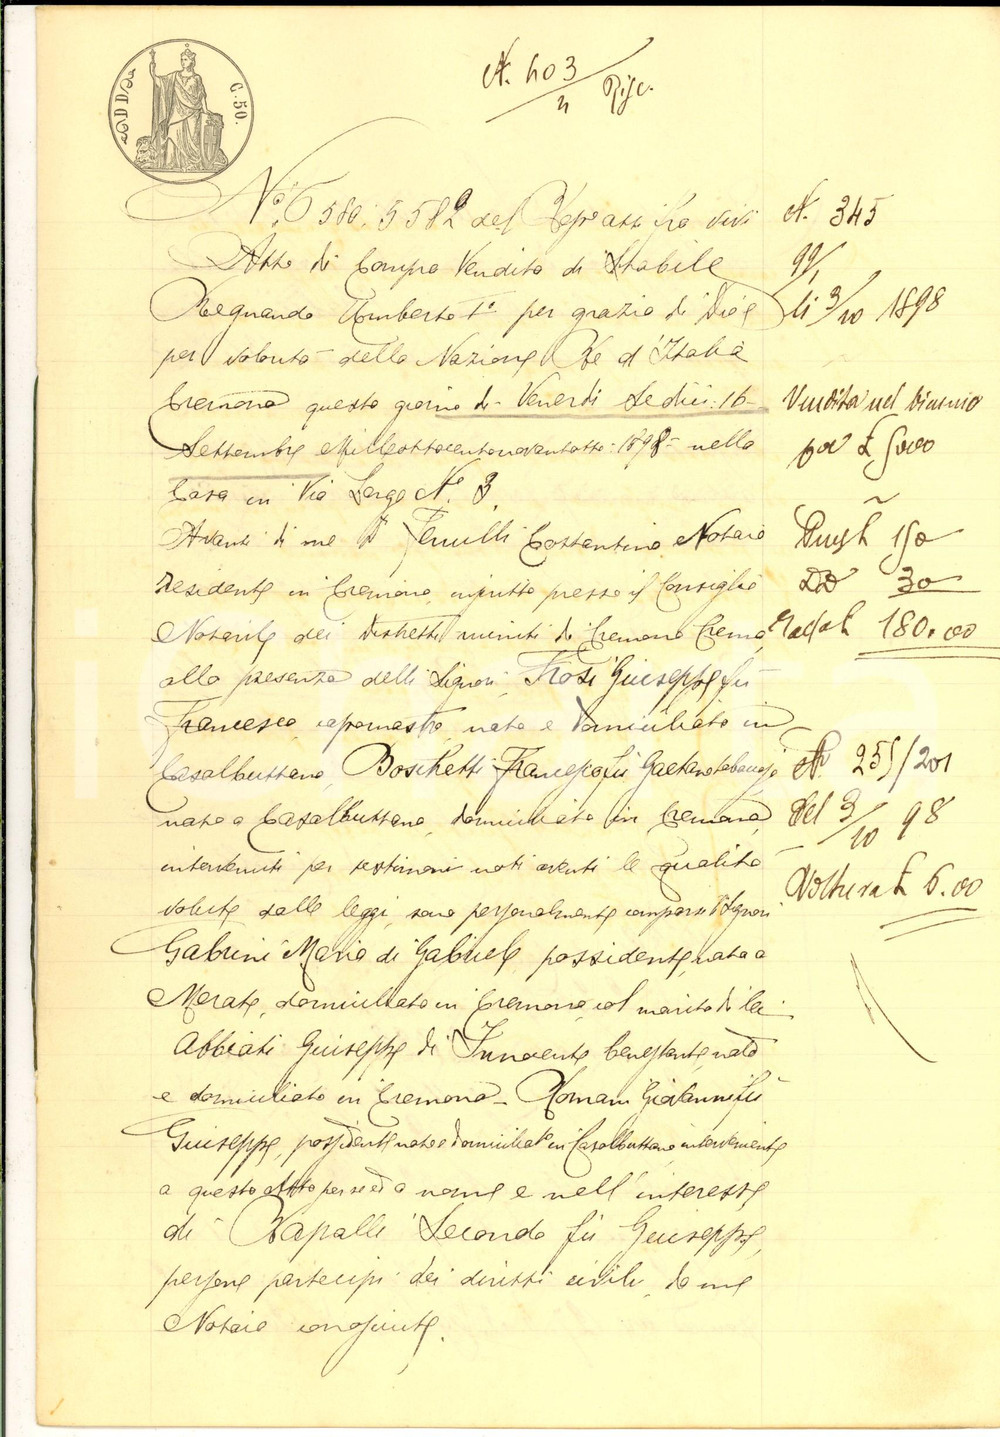 C. 50.
N. 403
N.° 6580. 5582 del Rep.° atti fra vivi
Atto di Compra Vendita di Stabile
Regnando Umberto I° per grazia di Dio e
per volontà della Nazione Re d'Italia
Cremona questo giorno di Venerdì Sedici: 16
Settembre Milleottocentonovantotto: 1898 - nella
Casa in Via Larga N.° 3.
Avanti di me D.r Costantino Notaio
residente in Cremona, inscritto presso il Consiglio
Notarile dei Distretti riuniti di Cremona Crema,
alla presenza delli Signori, Frosi Giuseppe fu
Francesco, capomastro, nato e domiciliato in
Casalbuttano, Boschetti Francesco fu Gaetano
nato a Casalbuttano, domiciliato in Cremona,
intervenuti per testimoni noti aventi le qualità
volute dalle leggi, sono personalmente comparsi i Signori
Gabrini Maria di Gabriele possidente, nata a
Merate, domiciliata in Cremona, col marito di lei
Abbiati Giuseppe di Innocente, benestante, nato
e domiciliato in Cremona - Romani Giovanni fu
Giuseppe, possidente nato e domiciliato in Casalbuttano, interveniente
a questo atto per sé ed a nome e nell'interesse
di Rapalli Secondo fu Giuseppe,
persone partecipi dei diritti civili, da me
Notaio conosciute.
N. 345
99/1
li 3/10 1898
Vendita nel
per £ 5000
150
DD 30
180.00
N. 251/201
del 3/10 98
Voltura £ 6.00